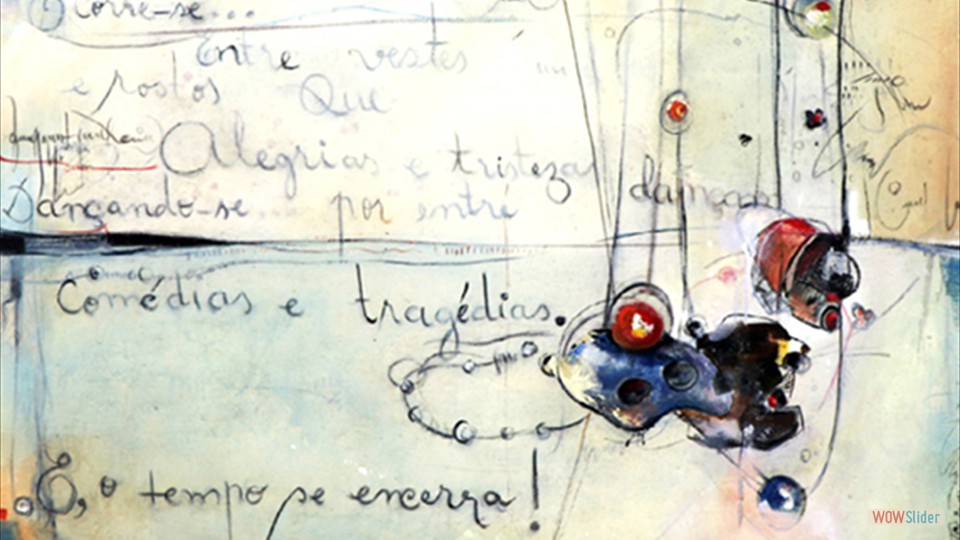 Corre-se...
Entre vestes
e rostos Que
Alegrias e tristezas dançam
Dançando-se... por entre
Comédias e tragédias.
E, o tempo se encerra!
WOWSlider